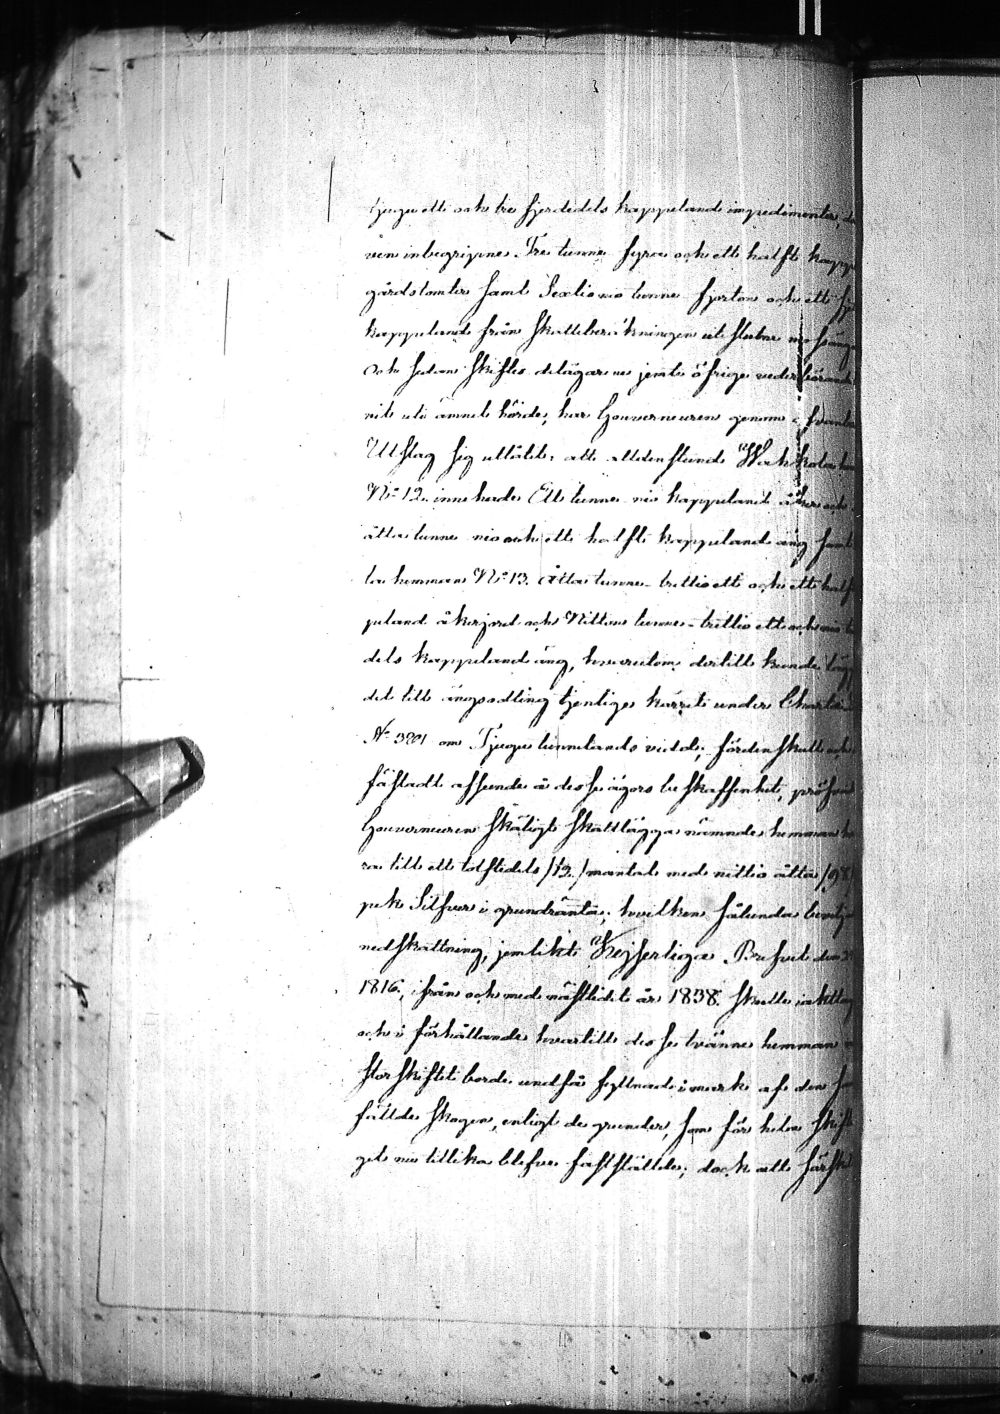 tjuguett och tre fjerdedels kappeland impedimenter, de
ven inbegripne Tre tunne fyra och ett halft kapp
gårdstomter samt Sextionio tunne fjorton och ett fje
kappeland från skatteberäkningen uteslutne
och sedan skiftes delägarene jemte öfrige vederbörande
nit uti ämnet hörde, har Gouverneuren genom
Utslag sig utlåtit att altdenstund
N:o 12. innehade Ett tunne nio kappeland åker och
åtta tunne nio och ett halft kappeland äng samt
la hemman N:o 13. åtta tunne trettioett och ett half
peland åkerjord och Nittons tunne trettioett och
dels kappeland äng, hvarutom dertill kunde lägg
det till ängsodling tjenliga kärret under Charte
N:o 3891 om Tjugu tunnelands vidd, förden skull och
fästadt afseende å desse ägors beskaffenhet, pröfvar
Gouverneuren skäligt skattlägga nämnde hemman
ra till ett tolftedels /12./ mantal med nittio åtta /98/
pek Silfver i grundränta; hvilken sålunda bevilja
nedskattning, jemlikt Kejserliga Brefvet den
1816, ifrån och med nästledit år 1838. skulle iakttag
och i förhållande hvartill desse tvänne hemman
storskiftet borde undfå fyllnad i mark af den
fällde skogen, enligt de grunder, som för hela skift
get nu tillika blefve fastställde; dock att